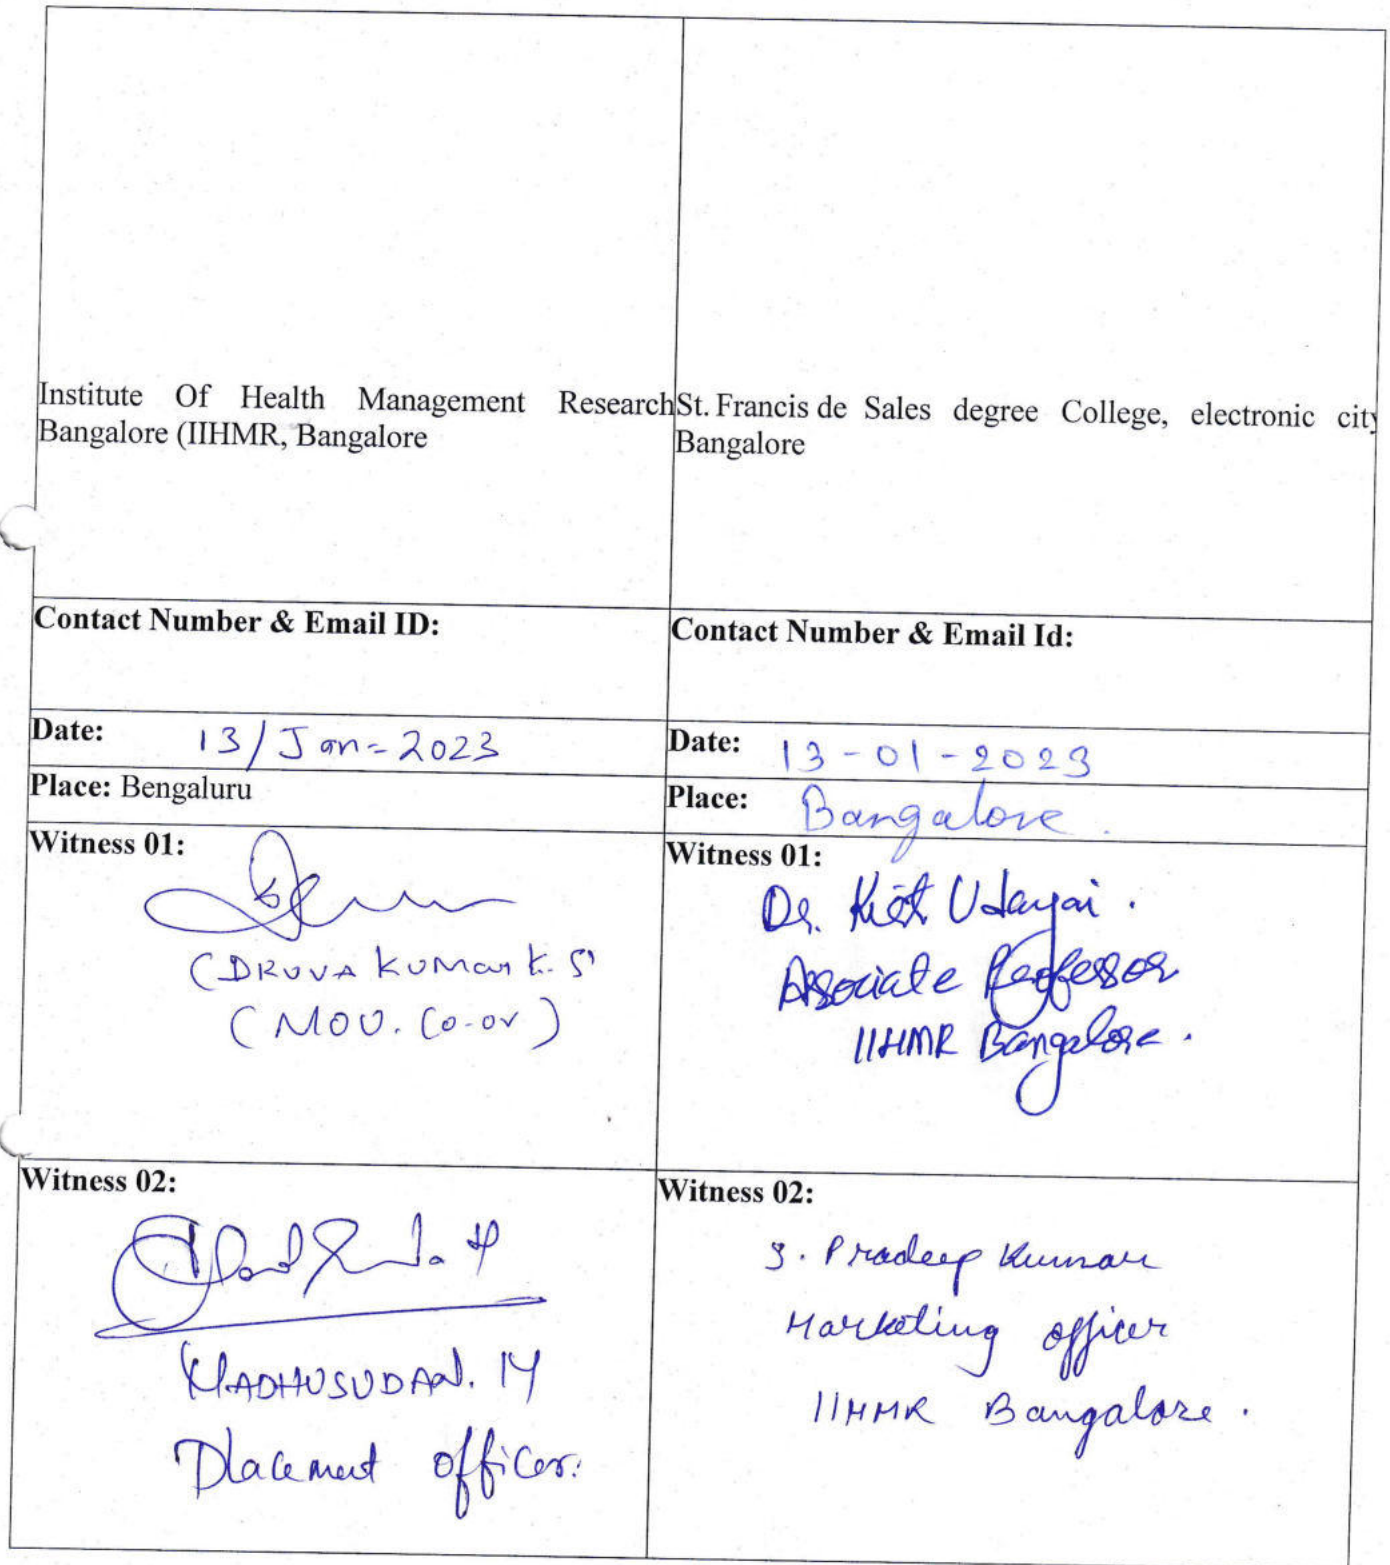 Institute Of Health Management Research
Bangalore (IIHMR, Bangalore
St. Francis de Sales degree College, electronic city
Bangalore
Contact Number & Email ID:
Contact Number & Email Id:
Date: 13/Jan-2023
Date: 13-01-2023
Place: Bengaluru
Place: Bangalore.
Witness 01:
(DRUVA KUMAR K. S)
(MOU. Co-or)
Witness 01:
Dr. Udayai.
Associate Professor
IIHMR Bangalore.
Witness 02:
MADHUSUDAN.
Placement officer.
Witness 02:
S. Pradeep Kumar
Marketing officer
IIHMR Bangalore.